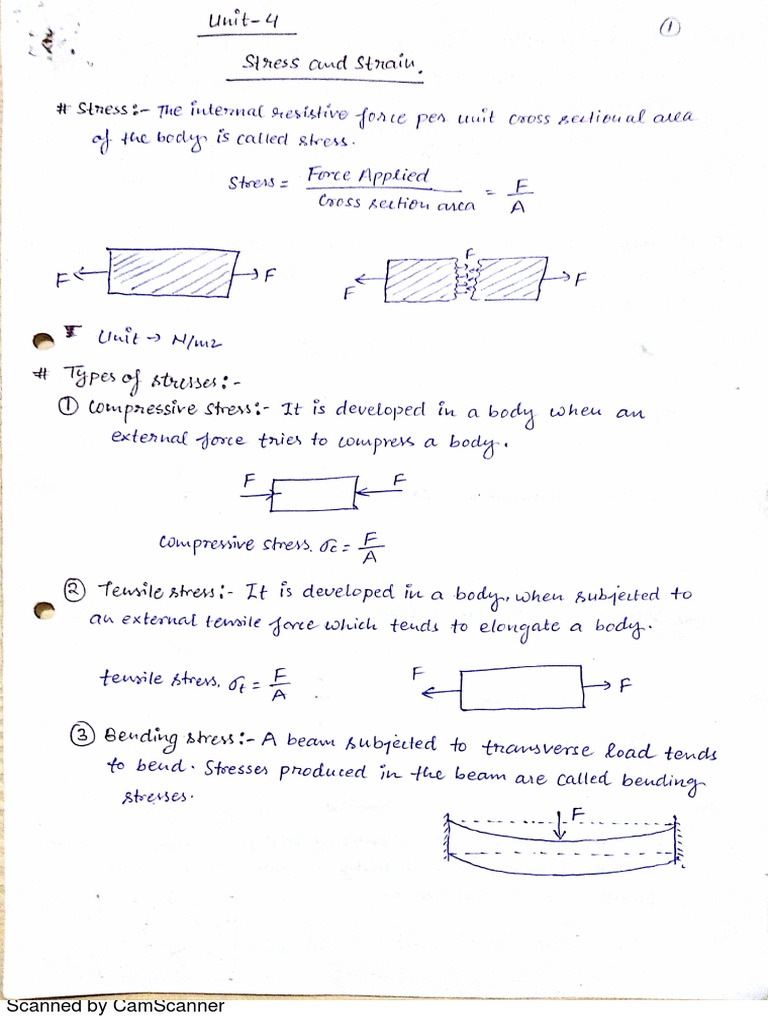 Unit-4
①
Stress and Strain.
# Stress:- The internal resistive force per unit cross sectional area
of the body, is called stress.
Stress = Force Applied / Cross section area = F / A
F F F F F
Unit → N/m2
# Types of stresses:-
① Compressive stress:- It is developed in a body when an
external force tries to compress a body.
F F
Compressive stress. σc = F / A
② Tensile stress:- It is developed in a body, when subjected to
an external tensile force which tends to elongate a body.
tensile stress. σt = F / A
F F
③ Bending stress:- A beam subjected to transverse load tends
to bend. Stresses produced in the beam are called bending
stresses.
F
Scanned by CamScanner